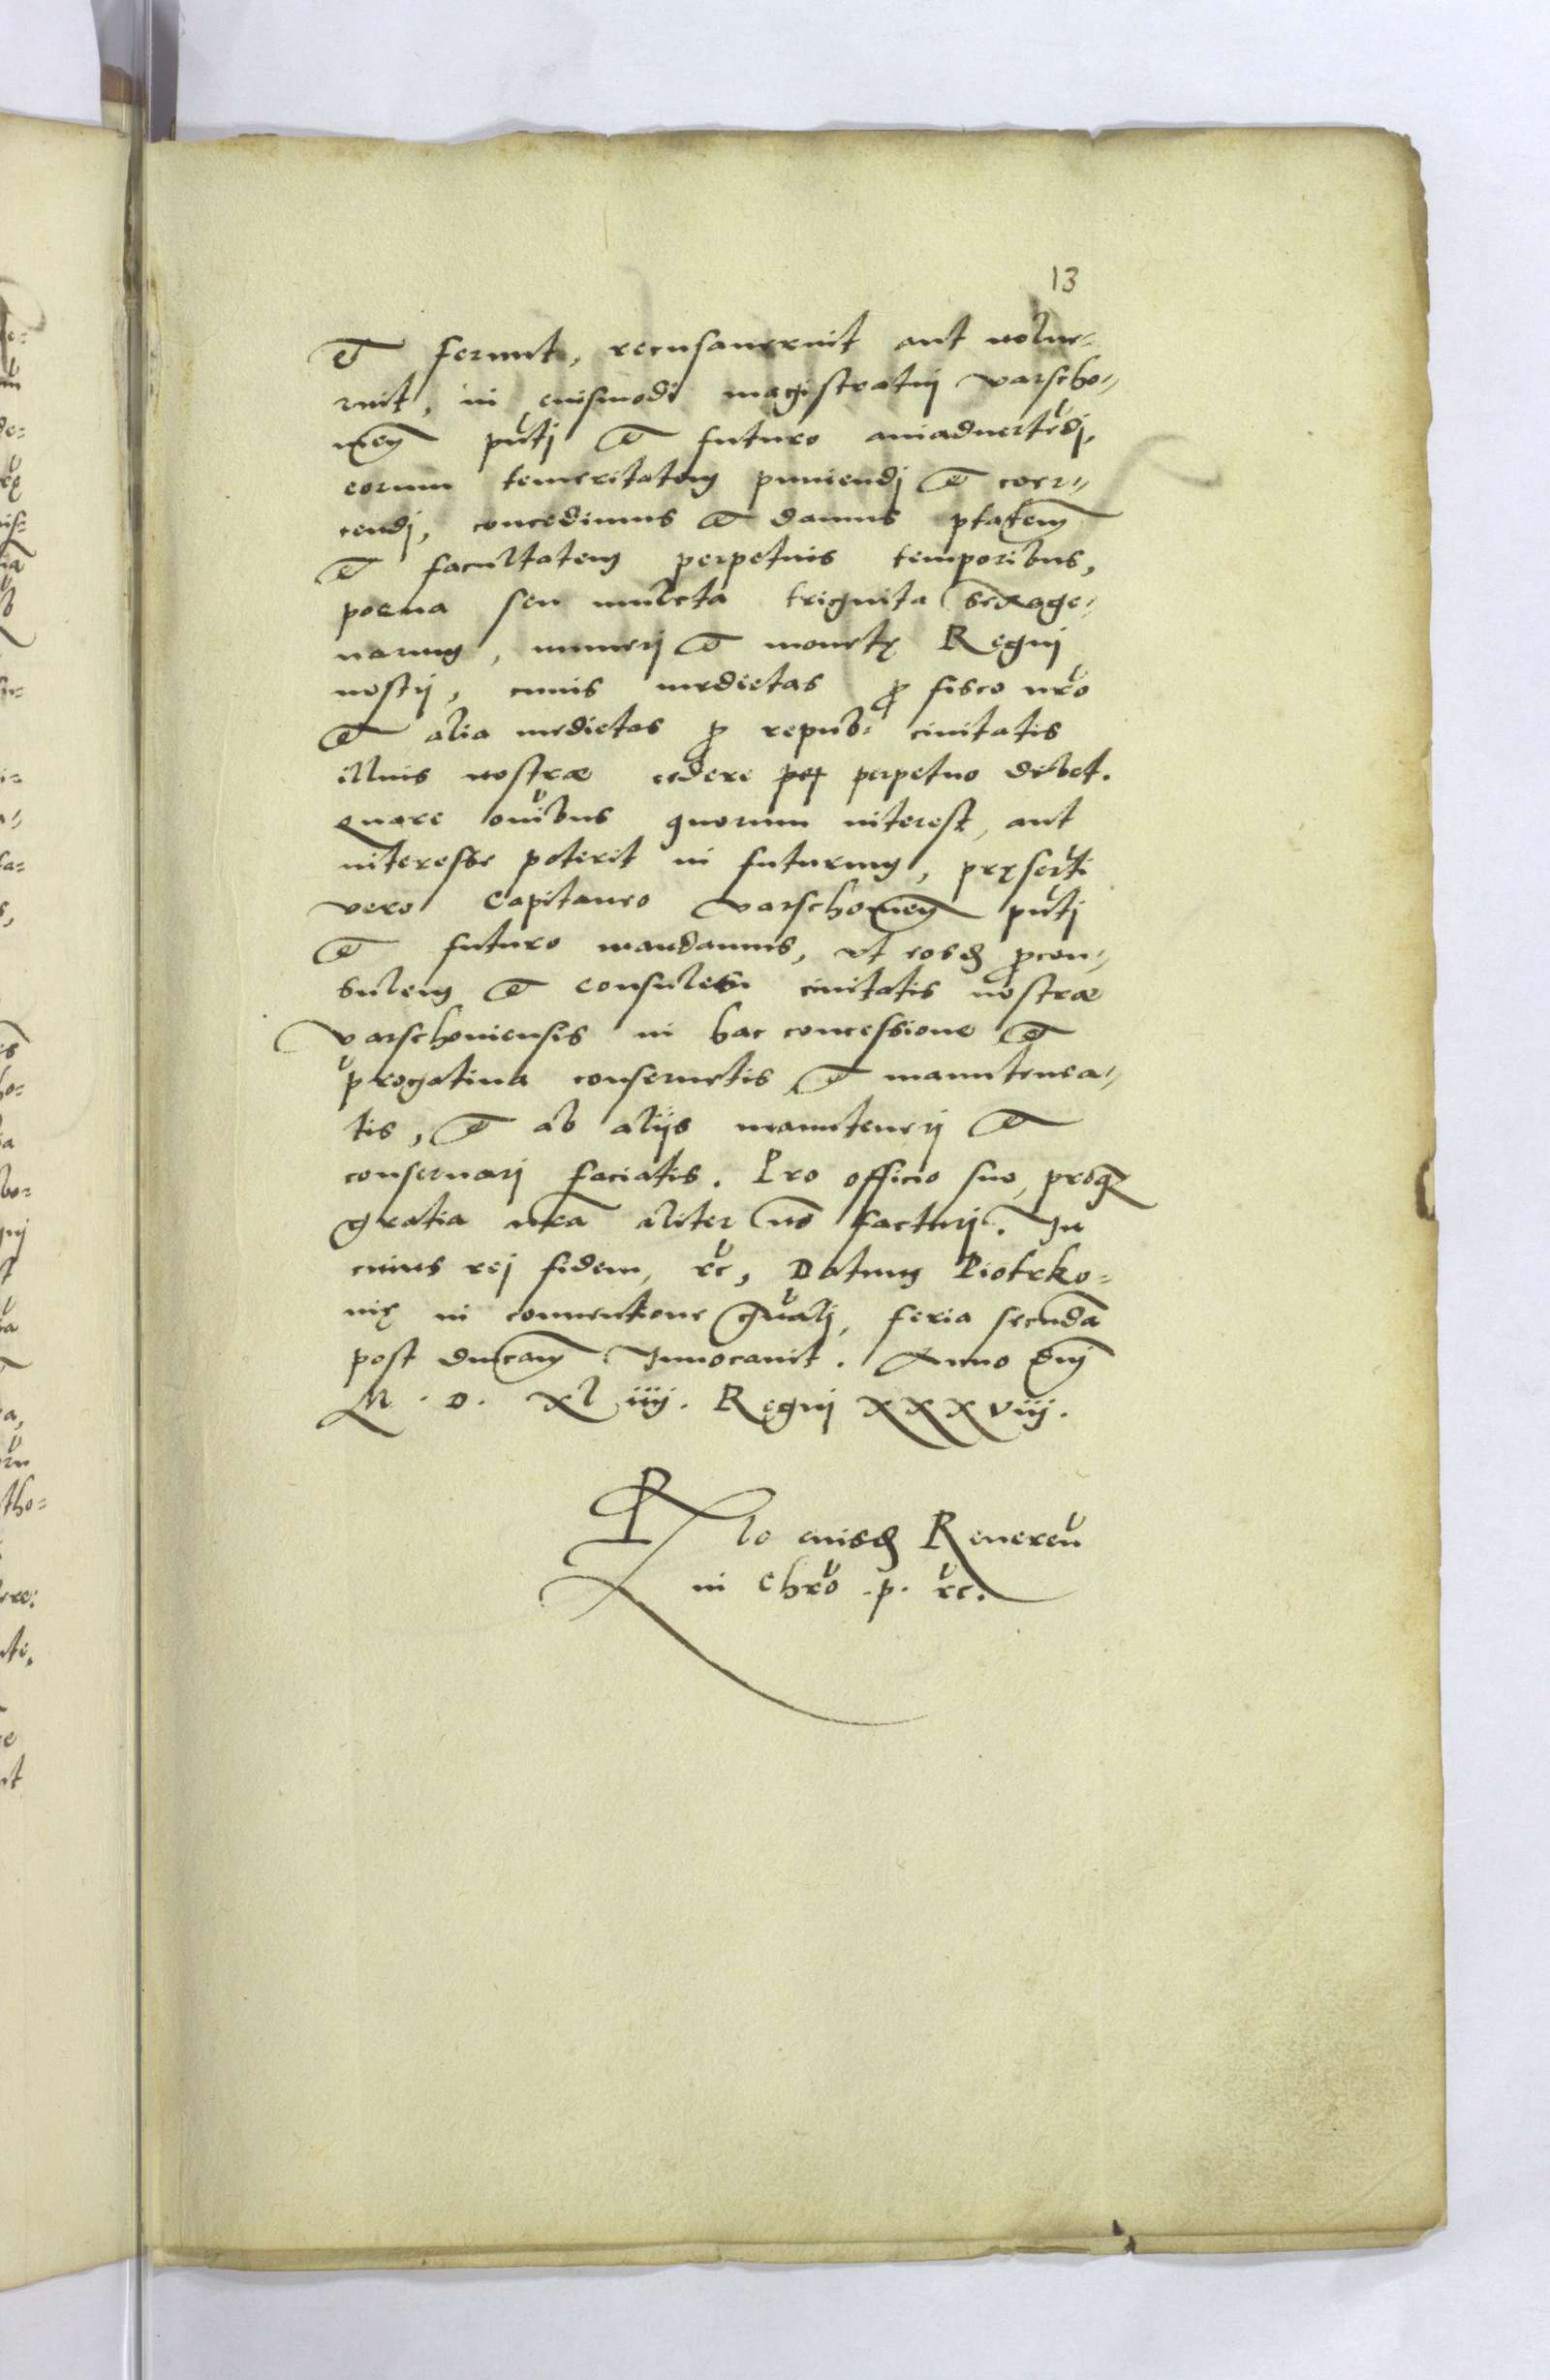 13
et ferunt, recusauerint aut nolue=
rint, in eiusmodi magistratui varscho=
uień pñti et futuro aĩaduertẽdj,
eorum temeritatem puniendj et coer=
cendj, concedimus et damus ptatem
et facultatem perpetuis temporibus,
poena seu mulcta triginta sexage=
narum, numerj et monetę Regnj
nostrj, cuius medietas ꝓ fisco nr̃o
et alia medietas ꝓ repub: ciuitatis
illius nostræ cedere per perpetuo debet.
quare oĩbus quorum interest, aut
interesse poterit in futurum, pręsertĩ
vero Capitaneo varschouień pñtj
et futuro mandamus, vt eosđ ꝓcon=
sulem et consules ciuitatis nostræ
varschouiensis in hac concessione et
p̃rogatiua conseruetis et manutenea=
tis, et ab alijs manutenerj et
conseruarj faciatis. Pro officio suo, proq̃
gratia nr̃a aliter nõ facturj. In
cuius rej fidem, rc̃, Datum Piotrko=
uię in conuentione gñalj, feria secunda
post dnicam Inuocauit. Anno dnj
M. D. xl iiij. Regnj xxxviij.
Rlo eiusđ Reueren̄
in Chrõ .p. rc̃.